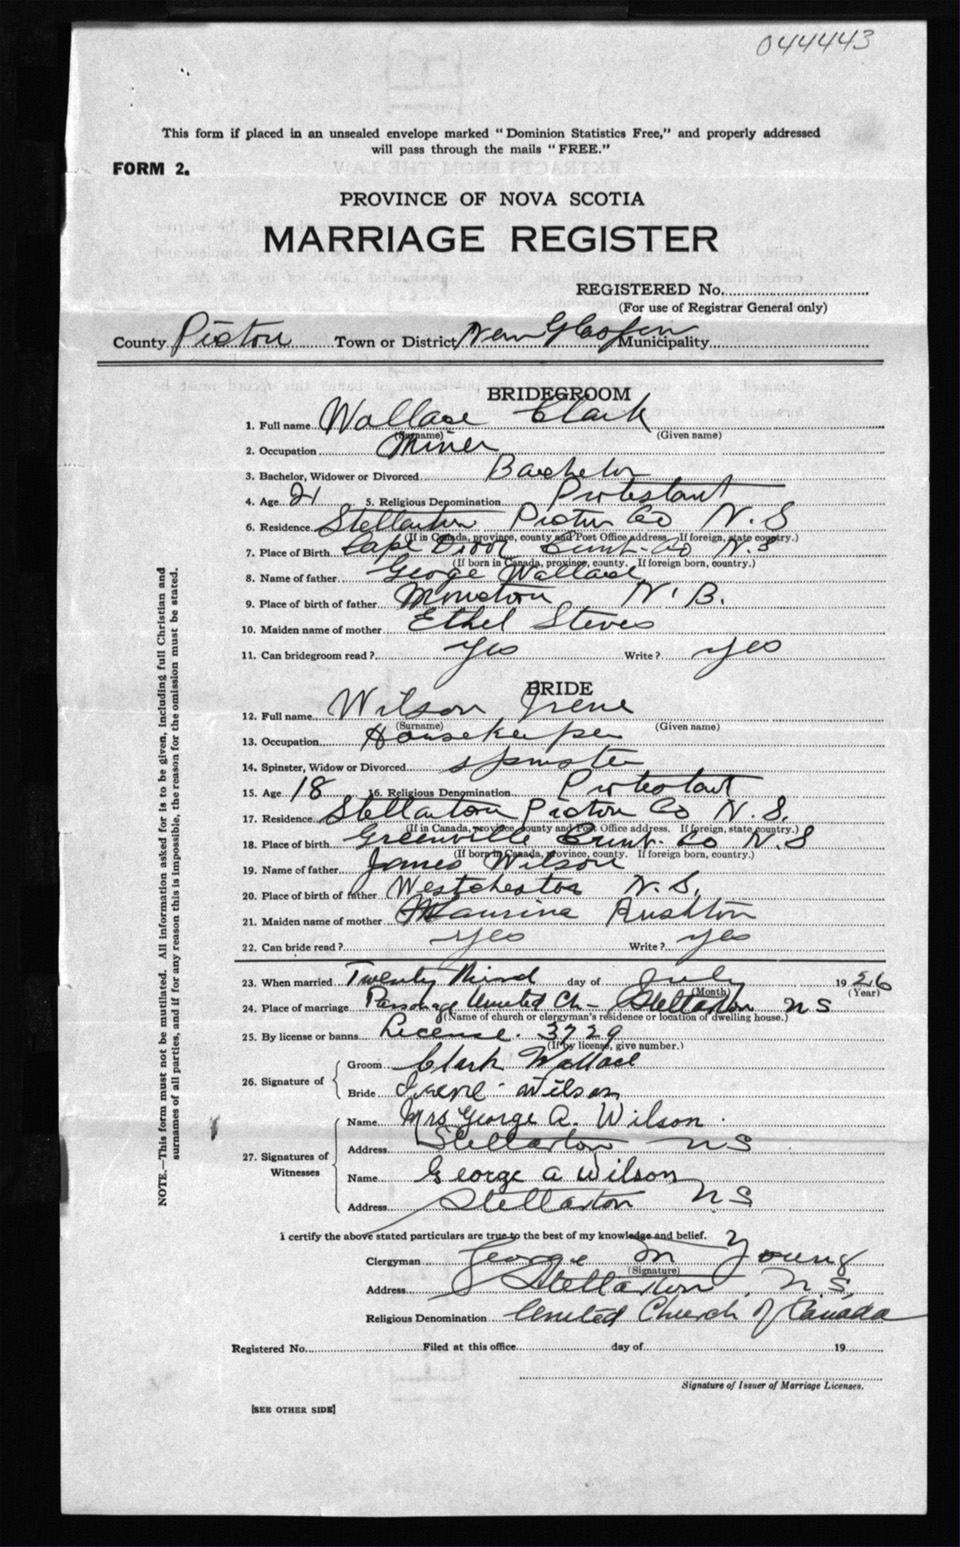 044443
This form if placed in an unsealed envelope marked "Dominion Statistics Free," and properly addressed
will pass through the mails "FREE."
FORM 2.
PROVINCE OF NOVA SCOTIA
MARRIAGE REGISTER
REGISTERED No.
(For use of Registrar General only)
County Pictou Town or District New Glasgow Municipality
BRIDEGROOM
1. Full name Wallace Clark
(Surname) (Given name)
2. Occupation Miner
3. Bachelor, Widower or Divorced Bachelor
4. Age 21 5. Religious Denomination Protestant
6. Residence Stellarton Pictou Co N.S
(If in Canada, province, county and Post Office address. If foreign, state country.)
7. Place of Birth Cape Co N.S
(If born in Canada, province, county. If foreign born, country.)
8. Name of father George Wallace
9. Place of birth of father Moncton N.B.
10. Maiden name of mother Ethel Steves
11. Can bridegroom read? yes Write? yes
BRIDE
12. Full name Wilson Irene
(Surname) (Given name)
13. Occupation Housekeeper
14. Spinster, Widow or Divorced spinster
15. Age 18 16. Religious Denomination Protestant
17. Residence Stellarton Pictou Co N.S.
(If in Canada, province county and Post Office address. If foreign, state country.)
18. Place of birth Greenville Cumb. Co N.S
(If born in Canada, province, county. If foreign born, country.)
19. Name of father James Wilson
20. Place of birth of father Westchester N.S.
21. Maiden name of mother Maurina Rushton
22. Can bride read? yes Write? yes
23. When married Twenty Third day of July 1926
(Month) (Year)
24. Place of marriage Parsonage United Ch- Stellarton NS
(Name of church or clergyman's residence or location of dwelling house.)
25. By license or banns License. 3729
(If by license, give number.)
26. Signature of
Groom Clark Wallace
Bride Irene Wilson
27. Signatures of Witnesses
Name Mrs George A. Wilson
Address Stellarton NS
Name George A Wilson
Address Stellarton NS
I certify the above stated particulars are true to the best of my knowledge and belief.
Clergyman George M Young
(Signature)
Address Stellarton N.S.
Religious Denomination United Church of Canada
Registered No. Filed at this office day of 19
Signature of Issuer of Marriage Licenses.
[SEE OTHER SIDE]
NOTE.—This form must not be mutilated. All information asked for is to be given, including full Christian and
surnames of all parties, and if for any reason this is impossible, the reason for the omission must be stated.